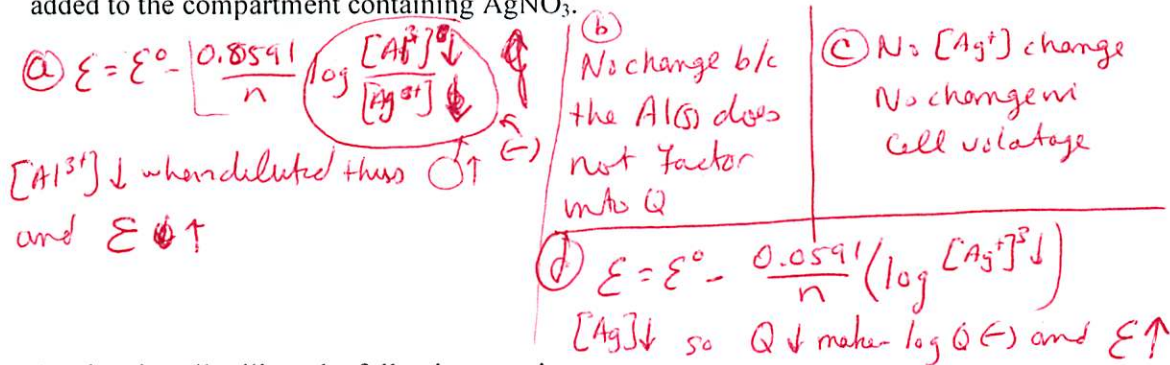 added to the compartment containing AgNO₃.
(a) ℰ = ℰ° - 0.0591/n log [Al³⁺]↓/[Ag⁺]
(-)
[Al³⁺] ↓ when diluted thus ↑
and ℰ ↑
(b)
No change b/c
the Al(s) does
not factor
into Q
(c) No [Ag⁺] change
No change in
Cell volatage
(d) ℰ = ℰ° - 0.0591/n (log [Ag⁺]³↓)
[Ag]↓ so Q ↓ makes log Q (-) and ℰ↑